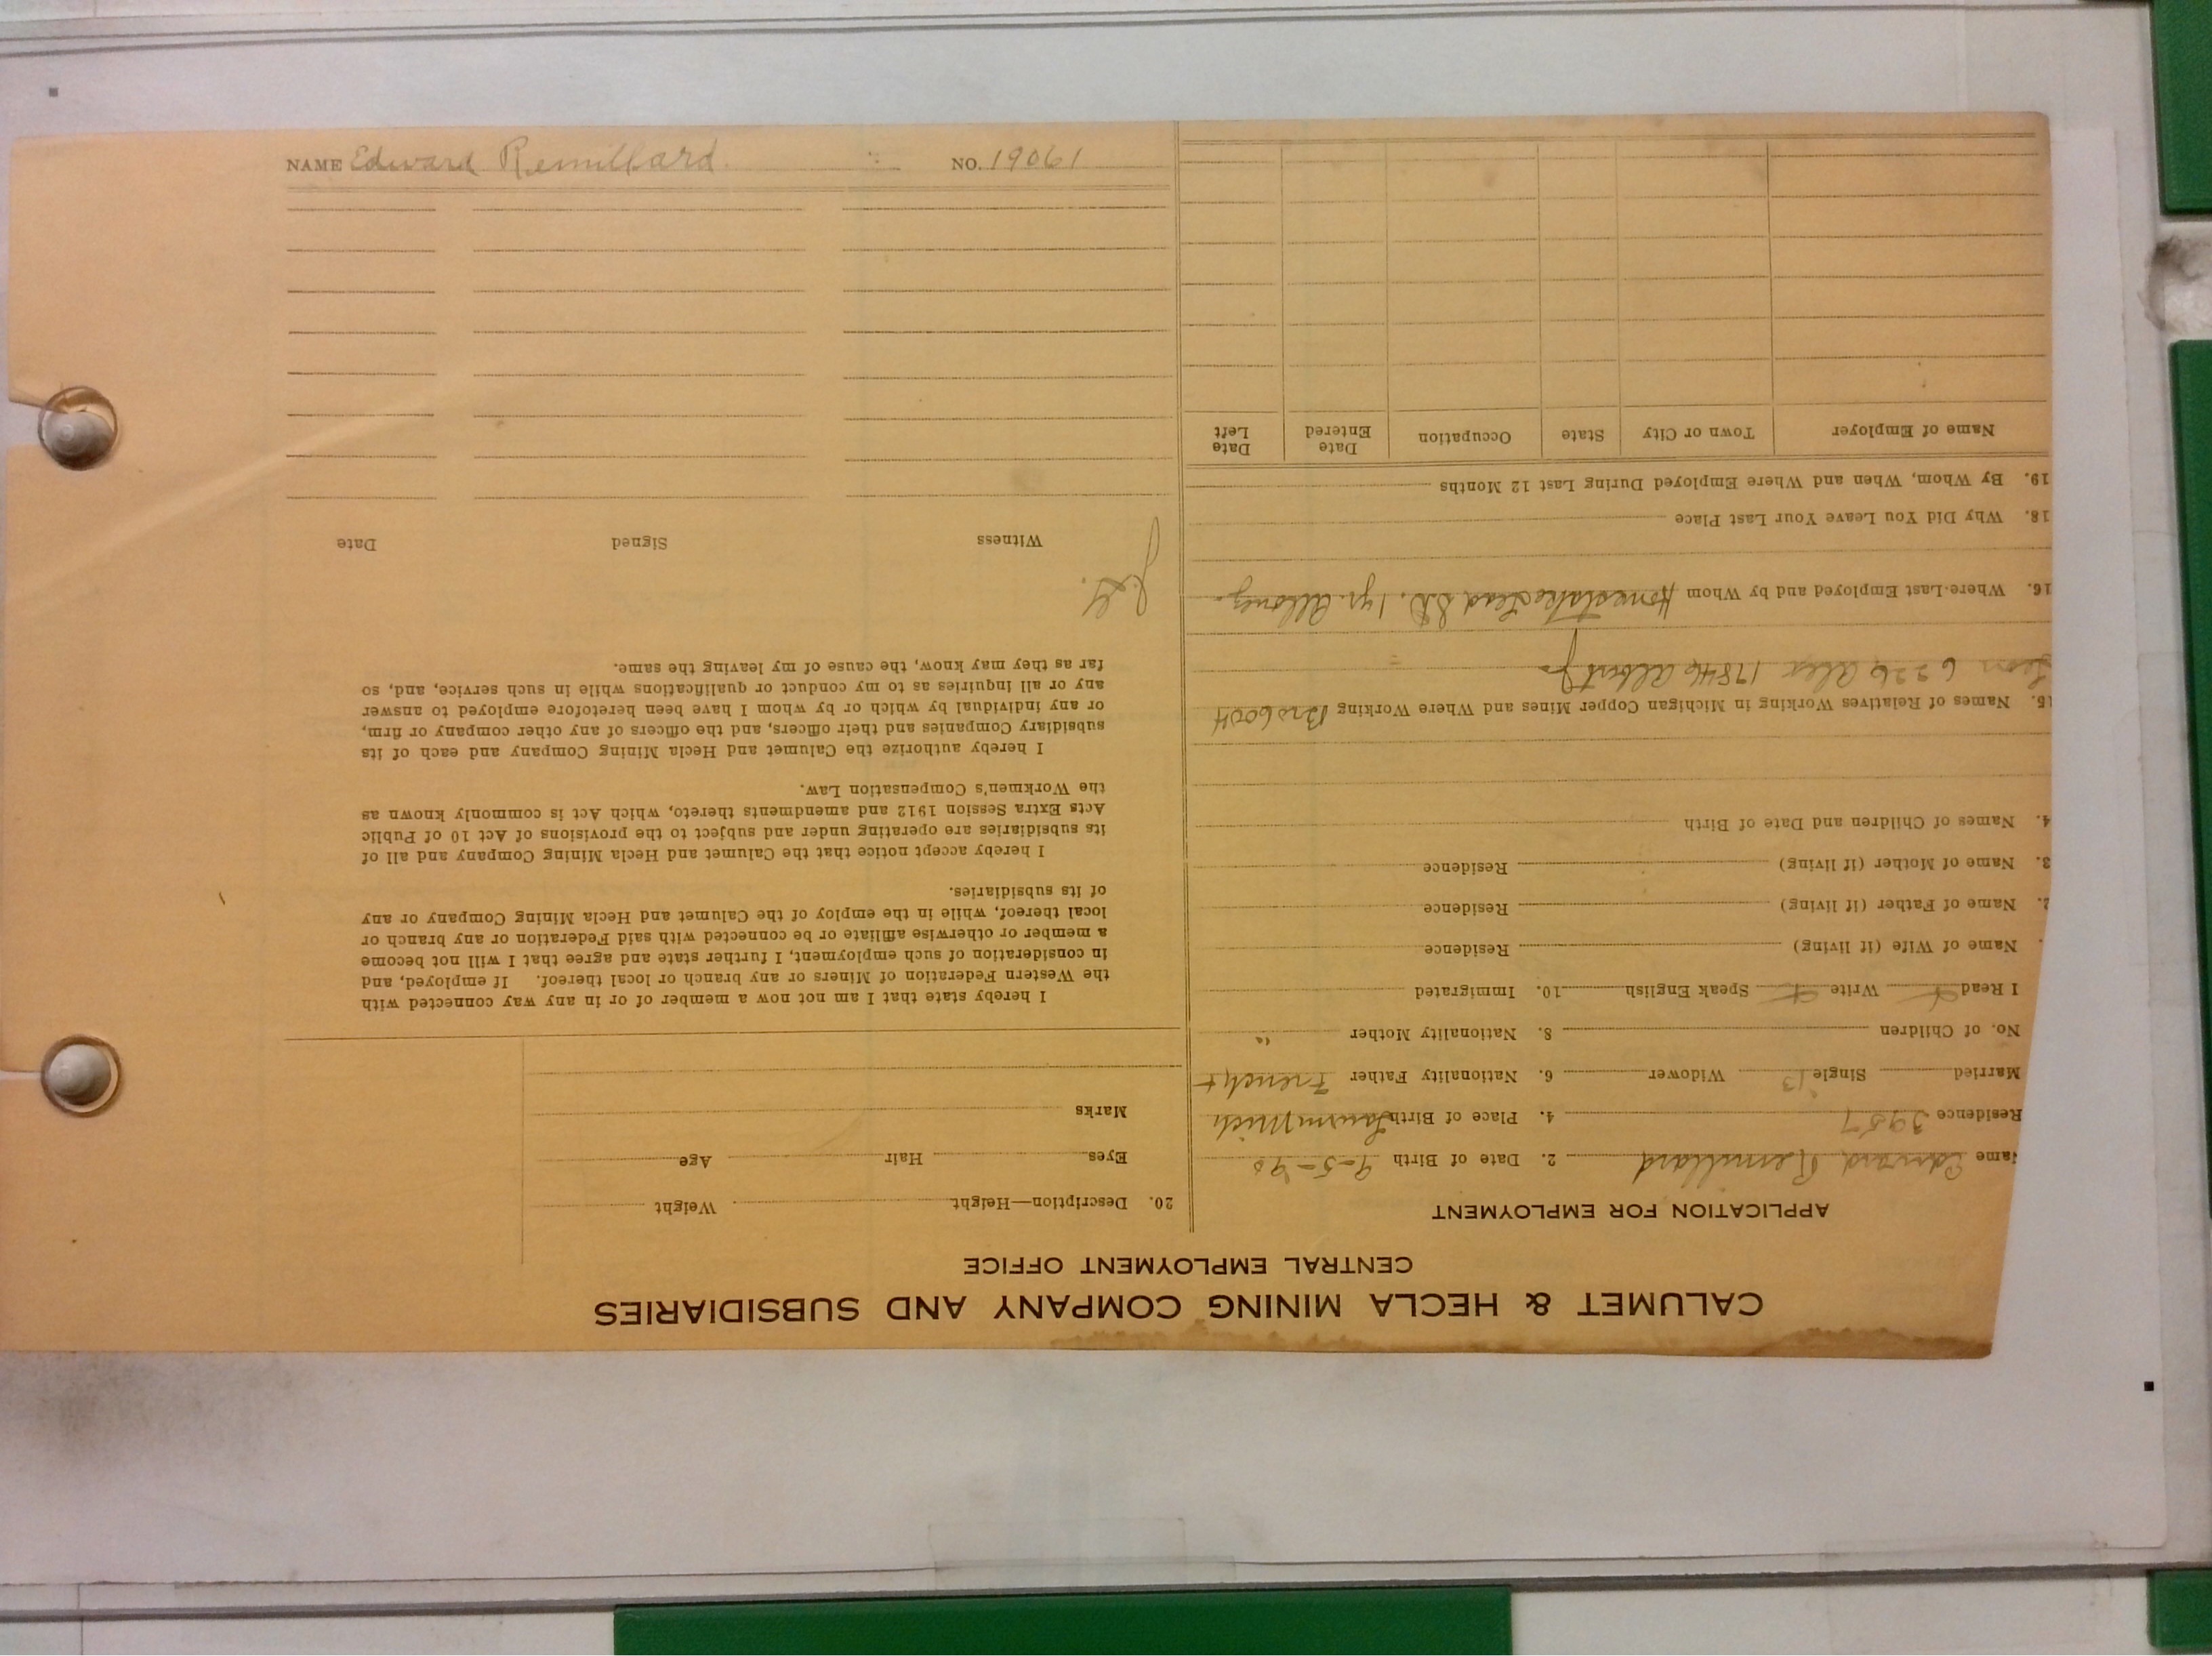 CALUMET & HECLA MINING COMPANY AND SUBSIDIARIES
CENTRAL EMPLOYMENT OFFICE
APPLICATION FOR EMPLOYMENT
Name Edward Remillard 2. Date of Birth 9-5-90
Residence 3957 4. Place of Birth Laurium Mich
Married Single 13 Widower 6. Nationality Father French
No. of Children 8. Nationality Mother "
I Read Write Speak English 10. Immigrated
Name of Wife (if living) Residence
2. Name of Father (if living) Residence
3. Name of Mother (if living) Residence
4. Names of Children and Date of Birth
15. Names of Relatives Working in Michigan Copper Mines and Where Working Bro 6004
Leon 6226 Alex 17846 Albert
16. Where Last Employed and by Whom Homestake Lead S.D. 1 yr.
18. Why Did You Leave Your Last Place
19. By Whom, When and Where Employed During Last 12 Months
Name of Employer Town or City State Occupation Date Entered Date Left
20. Description—Height Weight
Eyes Hair Age
Marks
I hereby state that I am not now a member of or in any way connected with
the Western Federation of Miners or any branch or local thereof. If employed, and
in consideration of such employment, I further state and agree that I will not become
a member or otherwise affiliate or be connected with said Federation or any branch or
local thereof, while in the employ of the Calumet and Hecla Mining Company or any
of its subsidiaries.
I hereby accept notice that the Calumet and Hecla Mining Company and all of
its subsidiaries are operating under and subject to the provisions of Act 10 of Public
Acts Extra Session 1912 and amendments thereto, which Act is commonly known as
the Workmen's Compensation Law.
I hereby authorize the Calumet and Hecla Mining Company and each of its
subsidiary Companies and their officers, and the officers of any other company or firm,
or any individual by which or by whom I have been heretofore employed to answer
any or all inquiries as to my conduct or qualifications while in such service, and, so
far as they may know, the cause of my leaving the same.
Witness Signed Date
NAME Edward Remillard NO. 19061